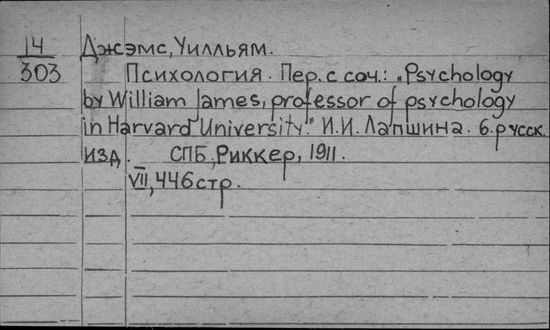 14 Джэмс, Уилльям.
303 Психология. Пер. с соч.: „Psychology
by William James, professor of psychology
in Harvard University." И.И. Лапшина. 6. русск.
изд. СПБ, Риккер, 1911.
VII, 446 стр.